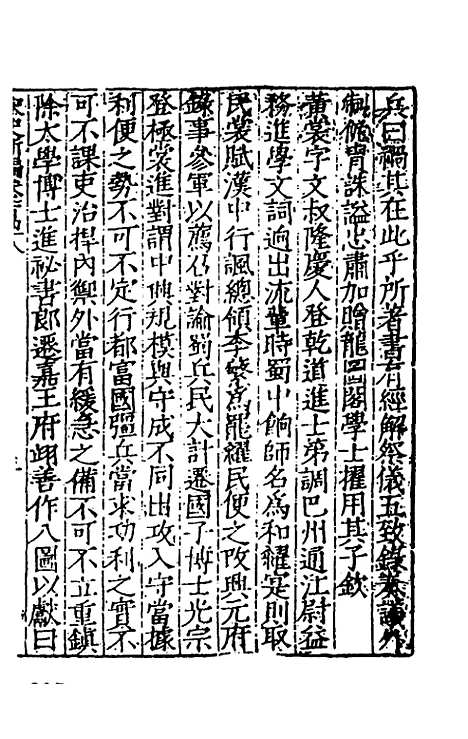 兵曰禍其在此乎所著書有經解祭儀五致錄奏議外
制侂胄誅謚忠肅加贈龍圖閣學士擢用其子欽
黄裳字文叔隆慶人登乾道進士第調巴州通江尉益
務進學文詞逈出流輩時蜀中餉師名為和糴寔則取
民裳賦漢中行諷總領李蘩為罷糴民便之改興元府
錄事參軍以薦召對論蜀兵民大計遷國子博士光宗
登極裳進對謂中興規模與守成不同出攻入守當據
利便之勢不可不定行都富國彊兵當求功利之實不
可不課吏治捍內禦外當有緩急之備不可不立重鎮
除太學博士進祕書郎遷嘉王府翊善作八圖以獻曰
宋史新編卷